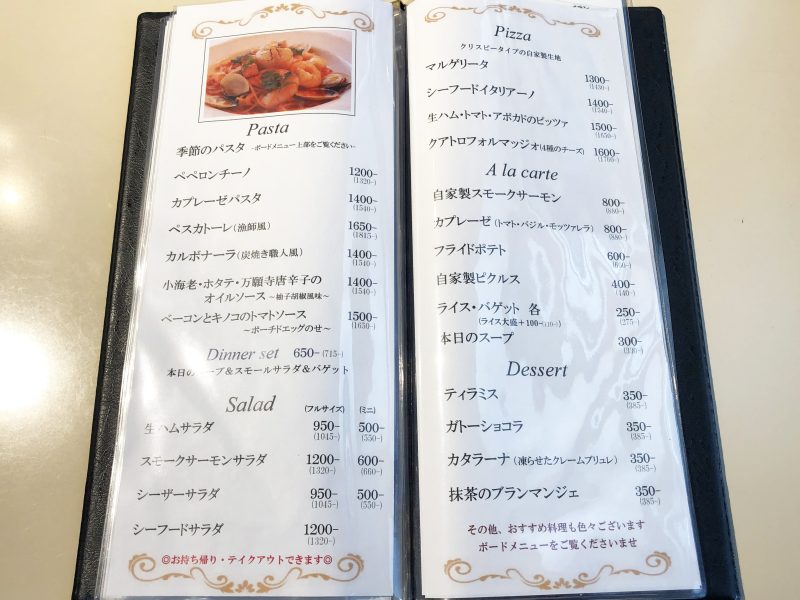 Pasta
季節のパスタ -ボードメニュー上部をご覧ください-
ペペロンチーノ 1200- (1320-)
カプレーゼパスタ 1400- (1540-)
ペスカトーレ(漁師風) 1650- (1815-)
カルボナーラ(炭焼き職人風) 1400- (1540-)
小海老・ホタテ・万願寺唐辛子の 1400- (1540-)
オイルソース ~柚子胡椒風味~
ベーコンとキノコのトマトソース 1500- (1650-)
~ポーチドエッグのせ~
Dinner set 650- (715-)
本日のスープ&スモールサラダ&バゲット
Salad (フルサイズ) (ミニ)
生ハムサラダ 950- (1045-) 500- (550-)
スモークサーモンサラダ 1200- (1320-) 600- (660-)
シーザーサラダ 950- (1045-) 500- (550-)
シーフードサラダ 1200- (1320-)
◎お持ち帰り・テイクアウトできます◎
Pizza
クリスピータイプの自家製生地
マルゲリータ 1300- (1430-)
シーフードイタリアーノ 1400- (1540-)
生ハム・トマト・アボカドのピッツァ 1500- (1650-)
クアトロフォルマッジォ(4種のチーズ) 1600- (1760-)
A la carte
自家製スモークサーモン 800- (880-)
カプレーゼ(トマト・バジル・モッツァレラ) 800- (880-)
フライドポテト 600- (660-)
自家製ピクルス 400- (440-)
ライス・バゲット 各 250- (275-)
(ライス大盛+100-(110-))
本日のスープ 300- (330-)
Dessert
ティラミス 350- (385-)
ガトーショコラ 350- (385-)
カタラーナ(凍らせたクレームブリュレ) 350- (385-)
抹茶のブランマンジェ 350- (385-)
その他、おすすめ料理も色々ございます
ボードメニューをご覧くださいませ